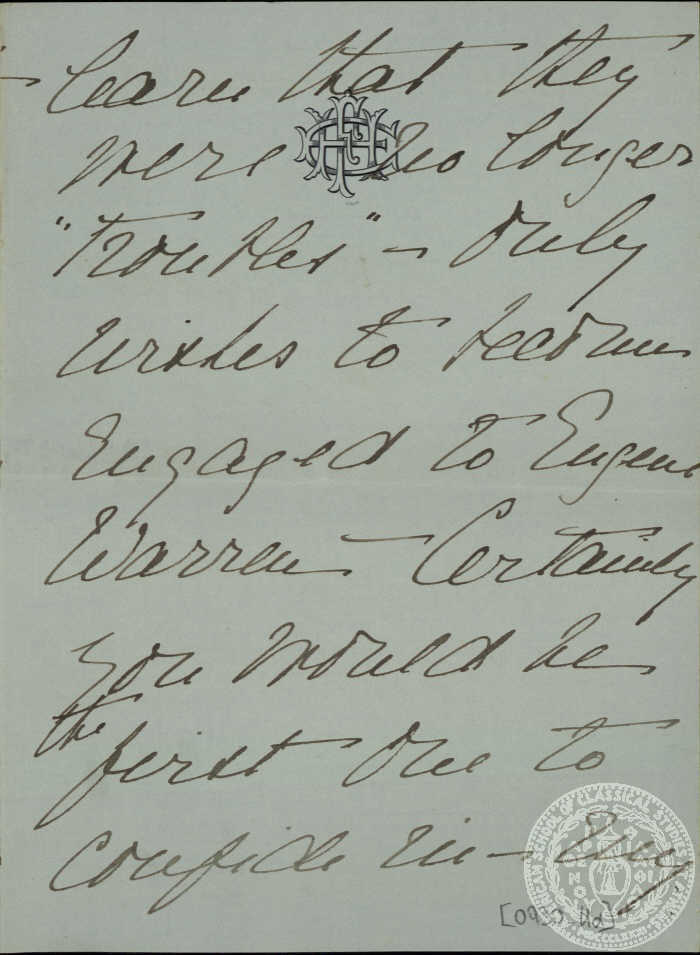 learn that they
were no longer
"Troubles" - Only
wishes to become
Engaged to Eugene
Warren - Certainly
you would be
the
first one to
confide in -
[0930_11d]
AMERICAN SCHOOL OF CLASSICAL STUDIES